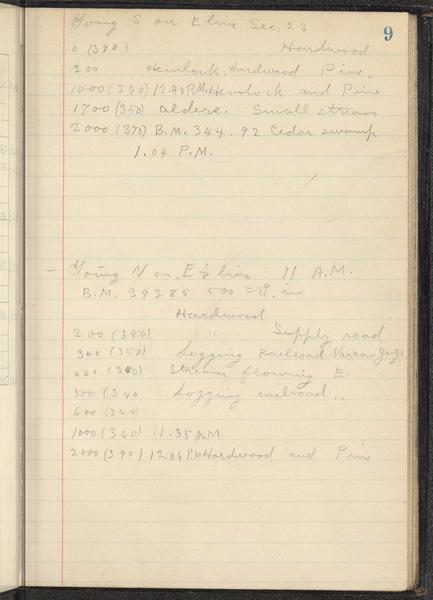 9
Going S on E line Sec. 23
0 (390) Hardwood
200 Hemlock, Hardwood Pine.
1000 (360) 12.40 P.M. Hemlock and Pine
1700 (350) alders. Small stream
2000 (370) B.M. 344.92 Cedar swamp
1.04 P.M.
- Going N on E⅛ line 11 A.M.
B.M. 393.85 500 = 79. in
Hardwood
200 (380) " Supply road
340 (350) Logging Railroad Narrow Gauge
430 (340) Stream flowing E.
500 (340 Logging railroad..
600 (340)
1000 (360) 11.35 A.M.
2000 (390) 12.04 P.M Hardwood and Pine